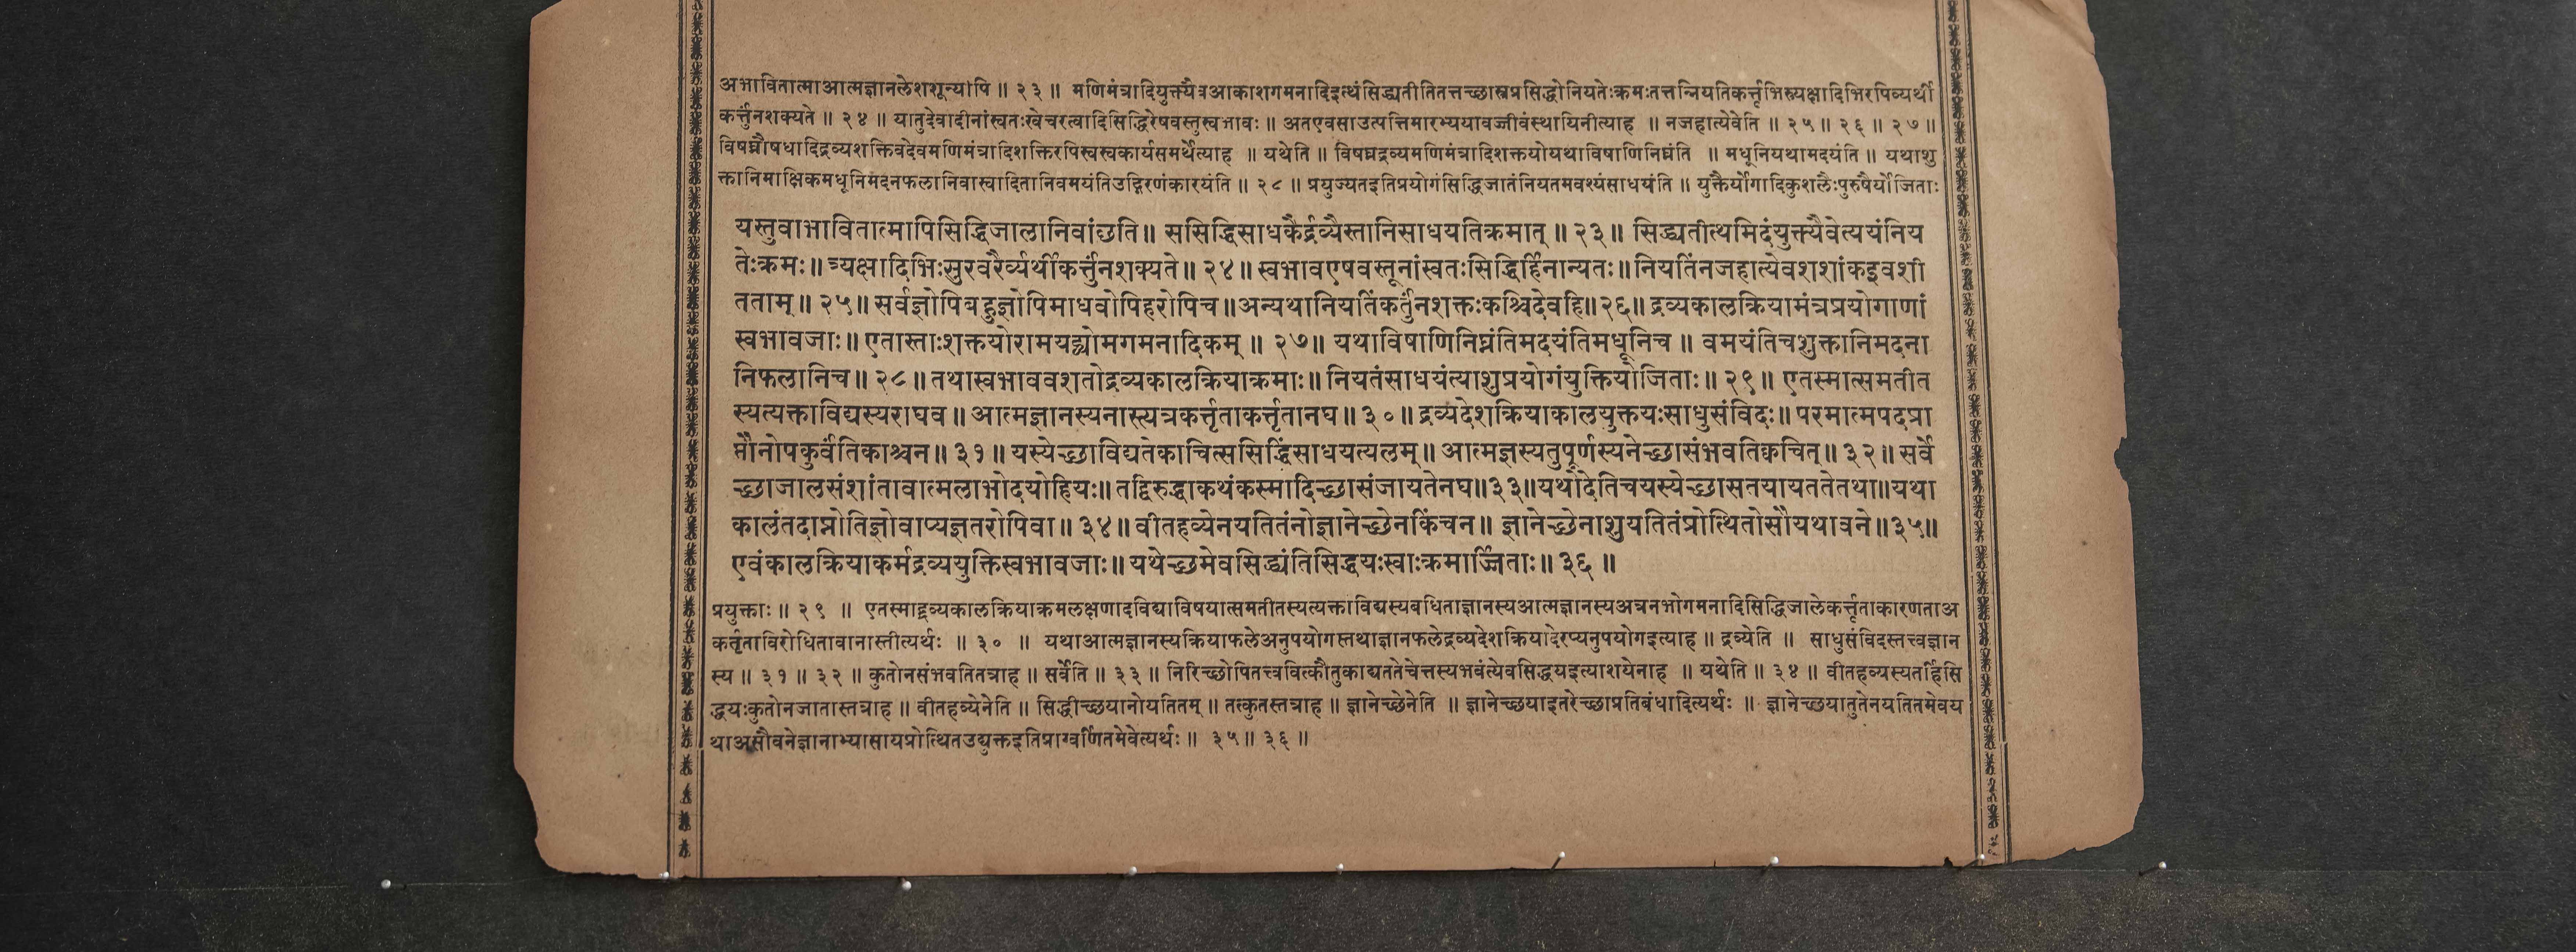 अभावितात्माआत्मज्ञानलेशशून्योपि ॥ २३ ॥ मणिमंत्रादियुक्त्यैवआकाशगमनादिइत्थंसिद्ध्यतीतितत्तच्छास्त्रप्रसिद्धोनियतेःक्रमःतत्तन्नियतिकर्त्तृभिस्त्र्यक्षादिभिरपिव्यर्थी
कर्त्तुंनशक्यते ॥ २४ ॥ यातुदेवादीनांस्वतःखेचरत्वादिसिद्धिरेषवस्तुस्वभावः ॥ अतएवसाउत्पत्तिमारभ्ययावज्जीवंस्थायिनीत्याह ॥ नजहात्येवेति ॥ २५ ॥ २६ ॥ २७ ॥
विषघ्नौषधादिद्रव्यशक्तिवदेवमणिमंत्रादिशक्तिरपिस्वस्वकार्यसमर्थेत्याह ॥ यथेति ॥ विषघ्नद्रव्यमणिमंत्रादिशक्तयोयथाविषाणिनिघ्नंति ॥ मधूनियथामदयंति ॥ यथाशु
क्तानिमाक्षिकमधूनिमदनफलानिवास्वादितानिवमयंतिउद्गिरणंकारयंति ॥ २८ ॥ प्रयुज्यतइतिप्रयोगंसिद्धिजातंनियतमवश्यंसाधयंति ॥ युक्तैर्योगादिकुशलैःपुरुषैर्योजिताः
यस्तुवाभावितात्मापिसिद्धिजालानिवांछति ॥ ससिद्धिसाधकैर्द्रव्यैस्तानिसाधयतिक्रमात् ॥ २३ ॥ सिद्ध्यतीत्थमिदंयुक्त्यैवेत्ययंनिय
तेःक्रमः ॥ त्र्यक्षादिभिःसुरवरैर्व्यर्थीकर्त्तुंनशक्यते ॥ २४ ॥ स्वभावएषवस्तूनांस्वतःसिद्धिर्हिनान्यतः ॥ नियतिंनजहात्येवशशांकइवशी
तताम् ॥ २५ ॥ सर्वज्ञोपिबहुज्ञोपिमाधवोपिहरोपिच ॥ अन्यथानियतिंकर्तुंनशक्तःकश्चिदेवहि ॥ २६ ॥ द्रव्यकालक्रियामंत्रप्रयोगाणां
स्वभावजाः ॥ एतास्ताःशक्तयोरामयद्व्योमगमनादिकम् ॥ २७ ॥ यथाविषाणिनिघ्नंतिमदयंतिमधूनिच ॥ वमयंतिचशुक्तानिमदना
निफलानिच ॥ २८ ॥ तथास्वभाववशतोद्रव्यकालक्रियाक्रमाः ॥ नियतंसाधयंत्याशुप्रयोगंयुक्तियोजिताः ॥ २९ ॥ एतस्मात्समतीत
स्यत्यक्ताविद्यस्यराघव ॥ आत्मज्ञानस्यनास्त्यत्रकर्त्तृताकर्त्तृतानघ ॥ ३० ॥ द्रव्यदेशक्रियाकालयुक्तयःसाधुसंविदः ॥ परमात्मपदप्रा
प्तौनोपकुर्वंतिकाश्चन ॥ ३१ ॥ यस्येच्छाविद्यतेकाचित्ससिद्धिंसाधयत्यलम् ॥ आत्मज्ञस्यतुपूर्णस्यनेच्छासंभवतिक्वचित् ॥ ३२ ॥ सर्वे
च्छाजालसंशांतावात्मलाभोदयोहियः ॥ तद्विरुद्धाकथंकस्मादिच्छासंजायतेनघ ॥ ३३ ॥ यथोदेतिचयस्येच्छासतयायततेतथा ॥ यथा
कालंतदाप्नोतिज्ञोवाप्यज्ञतरोपिवा ॥ ३४ ॥ वीतहव्येनयतितंनोज्ञानेच्छेनकिंचन ॥ ज्ञानेच्छेनाशुयतितंप्रोत्थितोसौयथावने ॥ ३५ ॥
एवंकालक्रियाकर्मद्रव्ययुक्तिस्वभावजाः ॥ यथेच्छमेवसिद्ध्यंतिसिद्धयःस्वाःक्रमार्ज्जिताः ॥ ३६ ॥
प्रयुक्ताः ॥ २९ ॥ एतस्माद्द्रव्यकालक्रियाक्रमलक्षणादविद्याविषयात्समतीतस्यत्यक्ताविद्यस्यबधिताज्ञानस्यआत्मज्ञानस्यअत्रनभोगमनादिसिद्धिजालेकर्त्तृताकारणताअ
कर्तृताविरोधितावानास्तीत्यर्थः ॥ ३० ॥ यथाआत्मज्ञानस्यक्रियाफलेअनुपयोगस्तथाज्ञानफलेद्रव्यदेशक्रियादेरप्यनुपयोगइत्याह ॥ द्रव्येति ॥ साधुसंविदस्तत्त्वज्ञान
स्य ॥ ३१ ॥ ३२ ॥ कुतोनसंभवतितत्राह ॥ सर्वेति ॥ ३३ ॥ निरिच्छोपितत्त्ववित्कौतुकाद्यततेचेत्तस्यभवंत्येवसिद्धयइत्याशयेनाह ॥ यथेति ॥ ३४ ॥ वीतहव्यस्यतर्हिसि
द्धयःकुतोनजातास्तत्राह ॥ वीतहव्येनेति ॥ सिद्धीच्छयानोयतितम् ॥ तत्कुतस्तत्राह ॥ ज्ञानेच्छेनेति ॥ ज्ञानेच्छयाइतरेच्छाप्रतिबंधादित्यर्थः ॥ ज्ञानेच्छयातुतेनयतितमेवय
थाअसौवनेज्ञानाभ्यासायप्रोत्थितउद्युक्तइतिप्राग्वर्णितमेवेत्यर्थः ॥ ३५ ॥ ३६ ॥